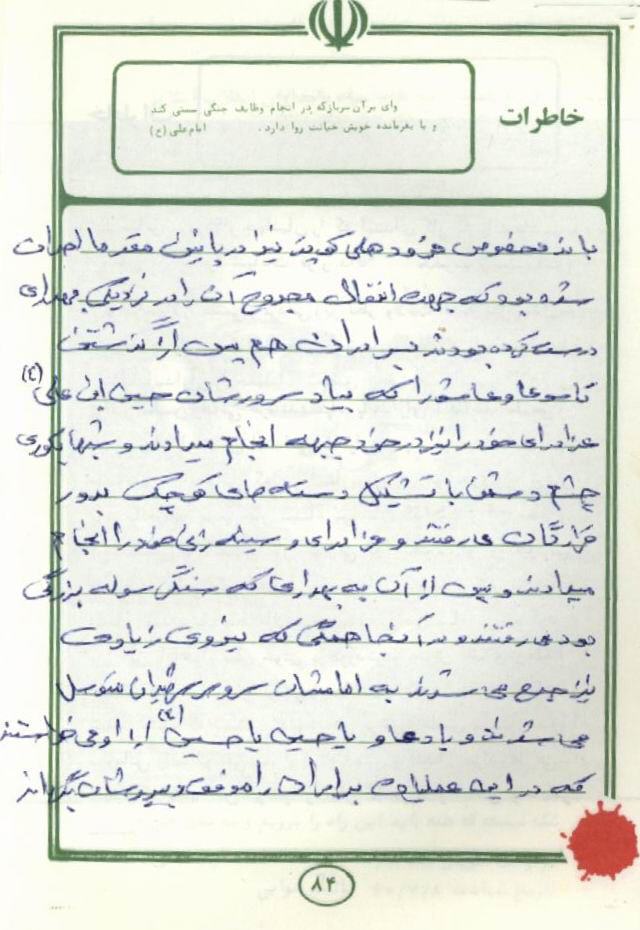 خاطرات
وای بر آن سربازی که در انجام وظایف جنگی سستی کند
و یا بفرمانده خویش خیانت روا دارد. امام علی (ع)
باند مخصوص فرود هلی کوپتر نیز در پائین مقر ما احداث
شده بود که جهت انتقال مجروح آن را در نزدیکی بهداری
درست کرده بودند برادران هم پس از گذشتن
تاسوعا و عاشورا که بیاد سرورشان حسین ابن علی (ع)
عزاداری خود را نیز در خود جبهه انجام میدادند و شبها بکوری
چشم دشمن با تشکیل دسته های کوچک بدور
می رفتند و عزاداری و سینه زنی خود را انجام
میدادند و پس از آن به بهداری که سنگر سوله بزرگی
بود می رفتند و در آنجا همگی که نیروی زیادی
نیز جمع می شدند به امامشان سرور شهیدان متوسل
می شدند و با دعا و یا حسین یا حسین (ع) از او می خواستند
که در این عملیات برادران را موفق و پیروزشان بگرداند
۸۴